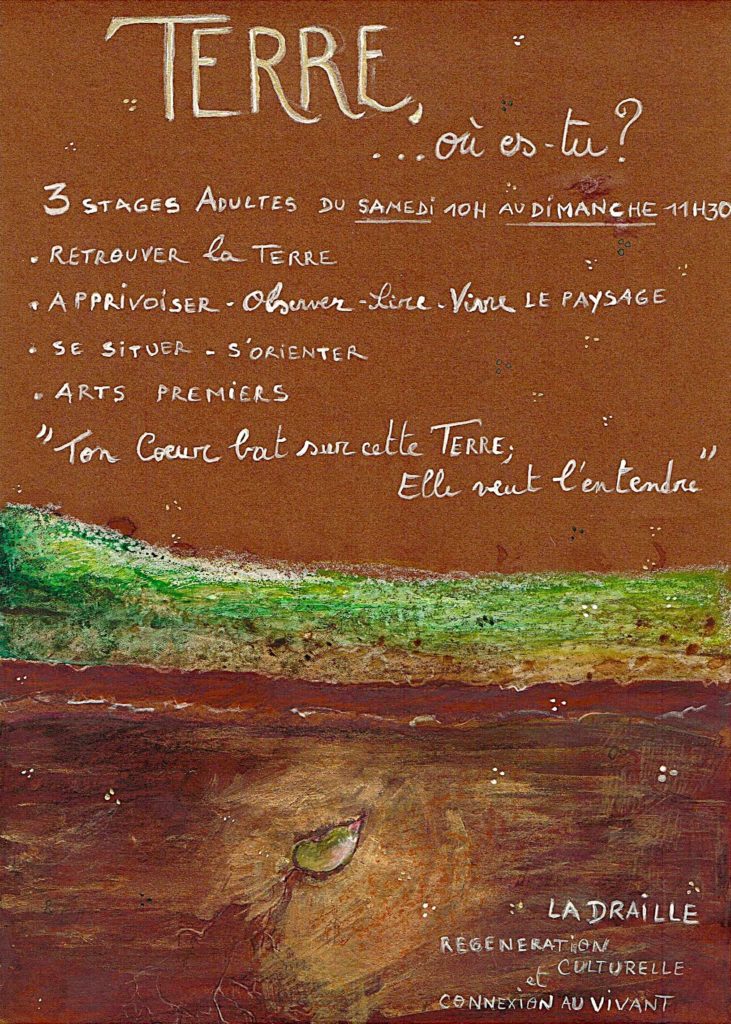 TERRE,
...où es-tu?
3 STAGES ADULTES DU SAMEDI 10H AU DIMANCHE 11H30
• RETROUVER la TERRE
• APPRIVOISER - Observer - Lire - Vivre LE PAYSAGE
• SE SITUER - S'ORIENTER
• ARTS PREMIERS
"Ton Coeur bat sur cette TERRE;
Elle veut l'entendre"
LA DRAILLE
REGENERATION
CULTURELLE
et
CONNEXION AU VIVANT